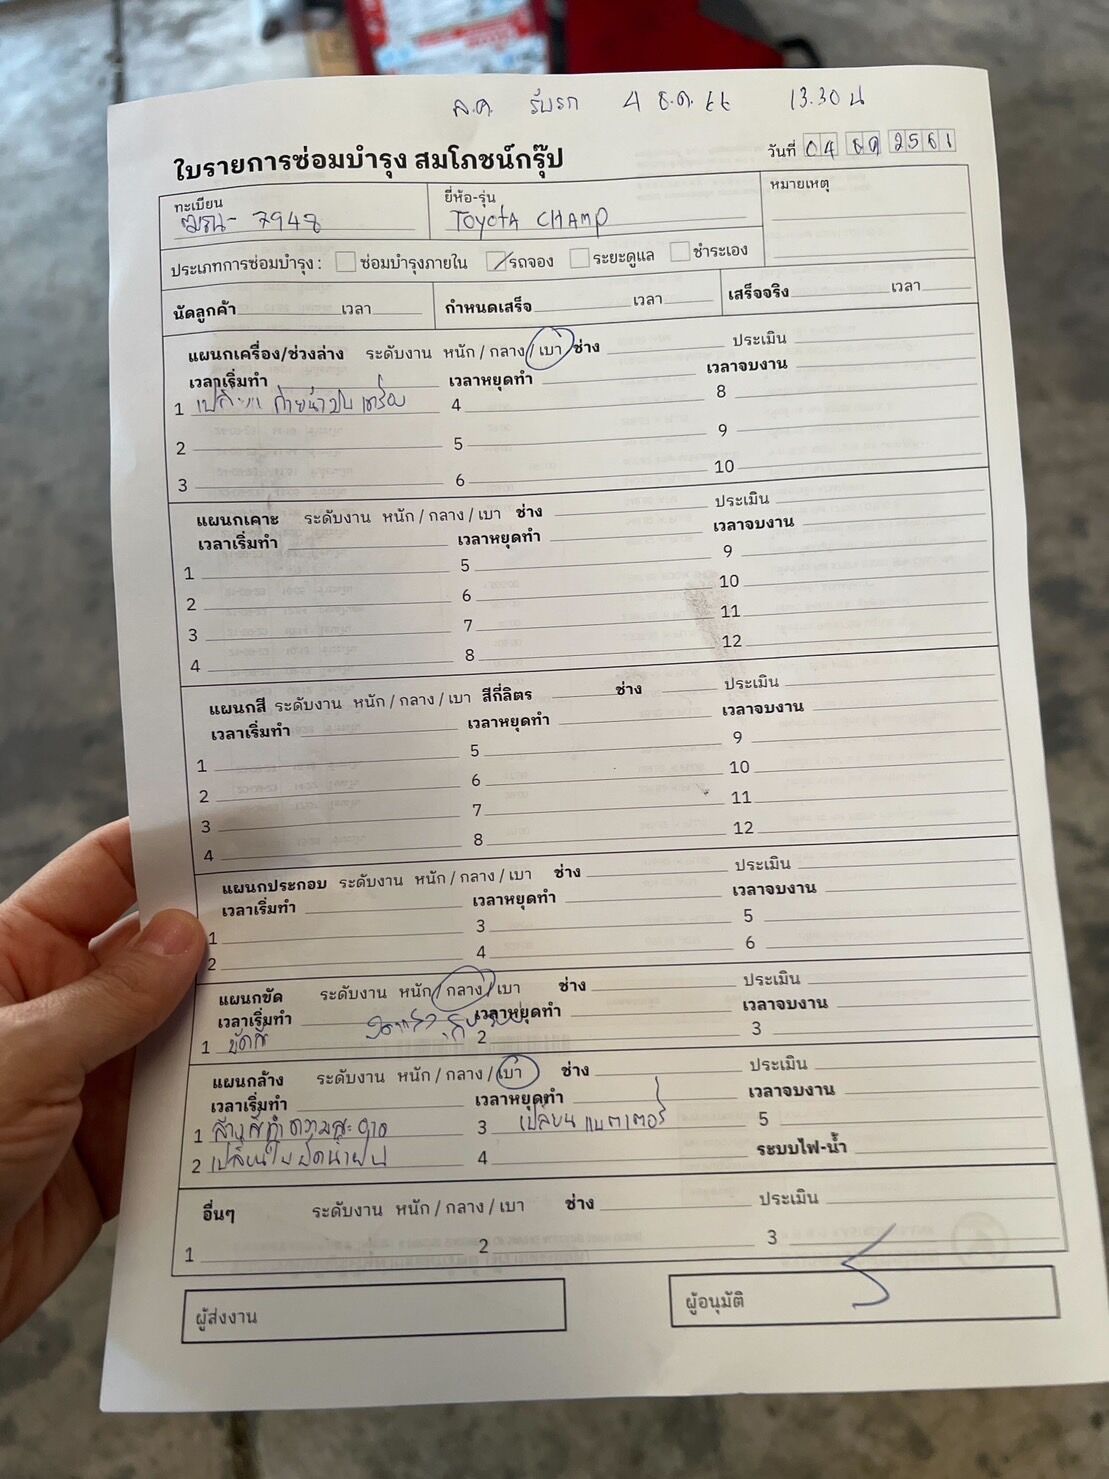 ล.ค. รับรถ 4 ธ.ค. 66 13.30 น
ใบรายการซ่อมบำรุง สมโภชน์กรุ๊ป วันที่ 04 2561
ทะเบียน ยี่ห้อ-รุ่น หมายเหตุ
7948 TOYOTA CHAMP
ประเภทการซ่อมบำรุง : ซ่อมบำรุงภายใน รถจอง ระยะดูแล ชำระเอง
นัดลูกค้า เวลา กำหนดเสร็จ เวลา เสร็จจริง เวลา
แผนกเครื่อง/ช่วงล่าง ระดับงาน หนัก / กลาง / เบา ช่าง ประเมิน
เวลาเริ่มทำ เวลาหยุดทำ เวลาจบงาน
1 เปลี่ยน ถ่ายน้ำมันเครื่อง 4 8
2 5 9
3 6 10
แผนกเคาะ ระดับงาน หนัก / กลาง / เบา ช่าง ประเมิน
เวลาเริ่มทำ เวลาหยุดทำ เวลาจบงาน
1 5 9
2 6 10
3 7 11
4 8 12
แผนกสี ระดับงาน หนัก / กลาง / เบา สีกี่ลิตร ช่าง ประเมิน
เวลาเริ่มทำ เวลาหยุดทำ เวลาจบงาน
1 5 9
2 6 10
3 7 11
4 8 12
แผนกประกอบ ระดับงาน หนัก / กลาง / เบา ช่าง ประเมิน
เวลาเริ่มทำ เวลาหยุดทำ เวลาจบงาน
1 3 5
2 4 6
แผนกขัด ระดับงาน หนัก / กลาง / เบา ช่าง ประเมิน
เวลาเริ่มทำ เวลาหยุดทำ เวลาจบงาน
1 ขัดสี 2 3
แผนกล้าง ระดับงาน หนัก / กลาง / เบา ช่าง ประเมิน
เวลาเริ่มทำ เวลาหยุดทำ เวลาจบงาน
1 ล้างสีทำความสะอาด 3 เปลี่ยน แบตเตอรี่ 5
2 เปลี่ยนใบปัดน้ำฝน 4 ระบบไฟ-น้ำ
อื่นๆ ระดับงาน หนัก / กลาง / เบา ช่าง ประเมิน
1 2 3
ผู้ส่งงาน ผู้อนุมัติ